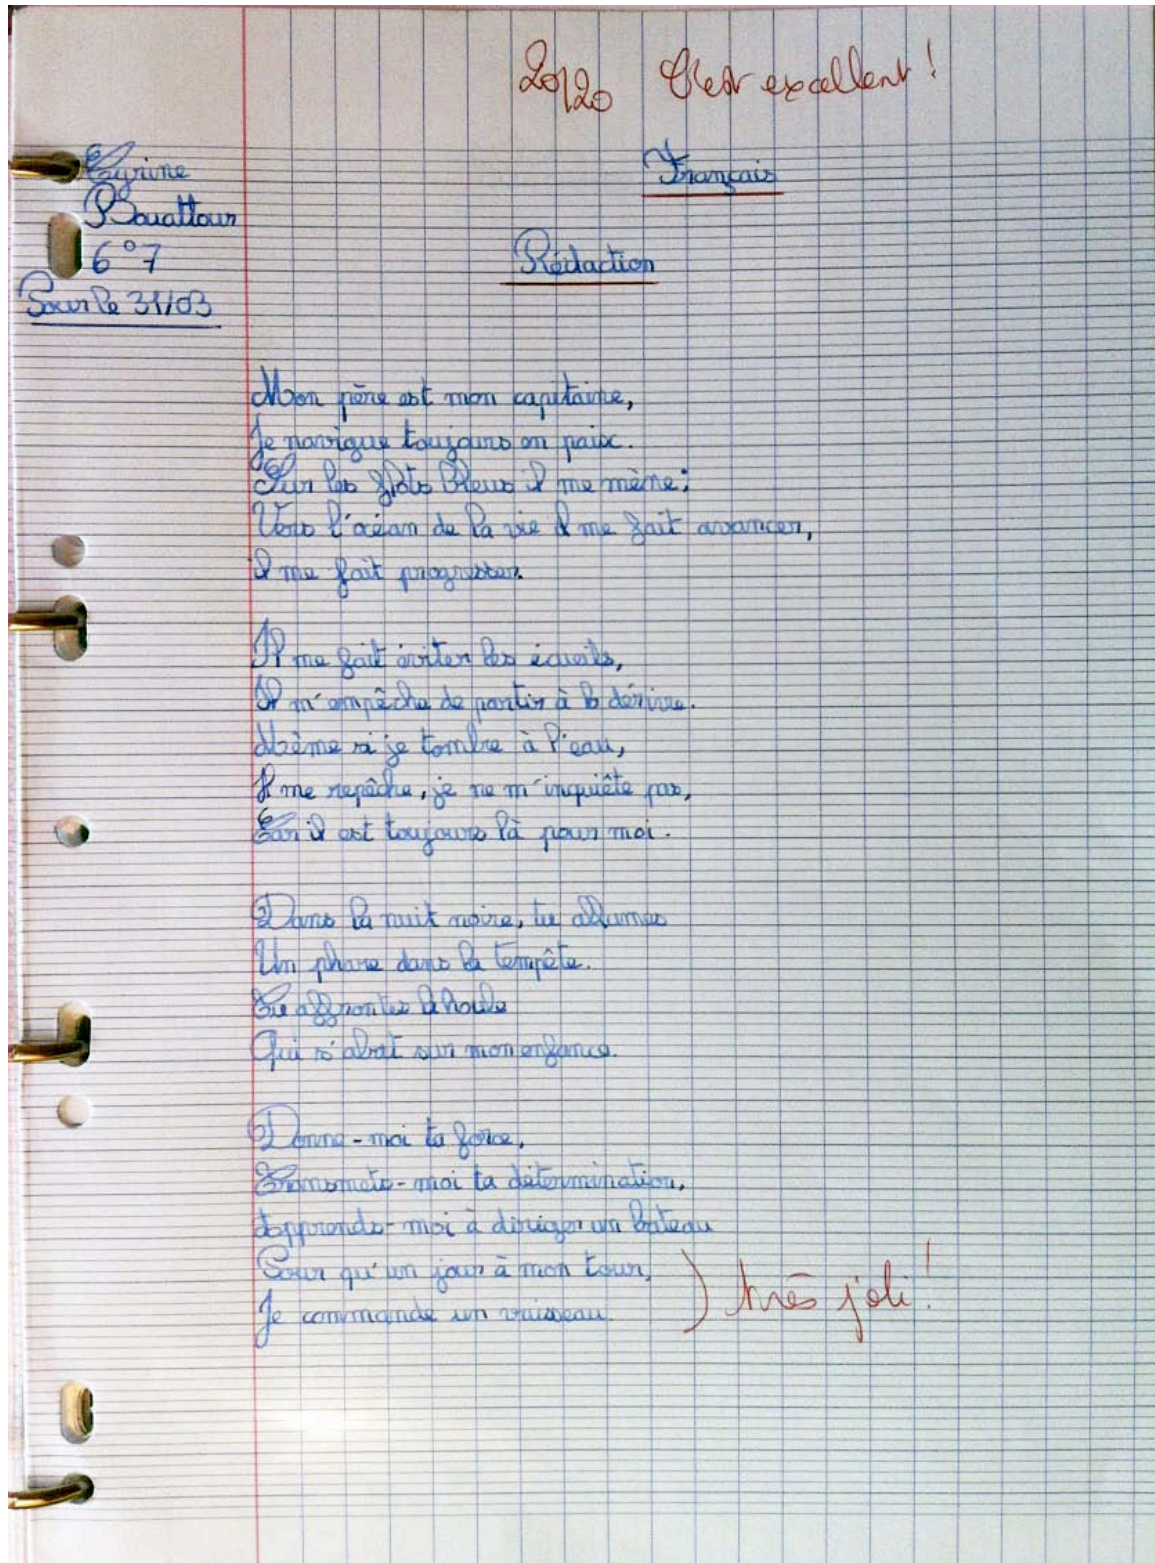 20/20 C'est excellent !
Cyrine
Français
Bouattour
6°7
Rédaction
Pour le 31/03
Mon père est mon capitaine,
Je navigue toujours en paix.
Sur les flots bleus il me mène ;
Vers l'océan de la vie il me fait avancer,
Il me fait progresser.
Il me fait éviter les écueils,
Il m'empêche de partir à la dérive.
Même si je tombe à l'eau,
Il me repêche, je ne m'inquiète pas,
Car il est toujours là pour moi.
Dans la nuit noire, tu allumes
Un phare dans la tempête.
Tu affrontes la houle
Qui s'abat sur mon enfance.
Donne-moi ta force,
Transmets-moi ta détermination,
Apprends-moi à diriger un bateau
Pour qu'un jour à mon tour,
Je commande un vaisseau.
très joli !